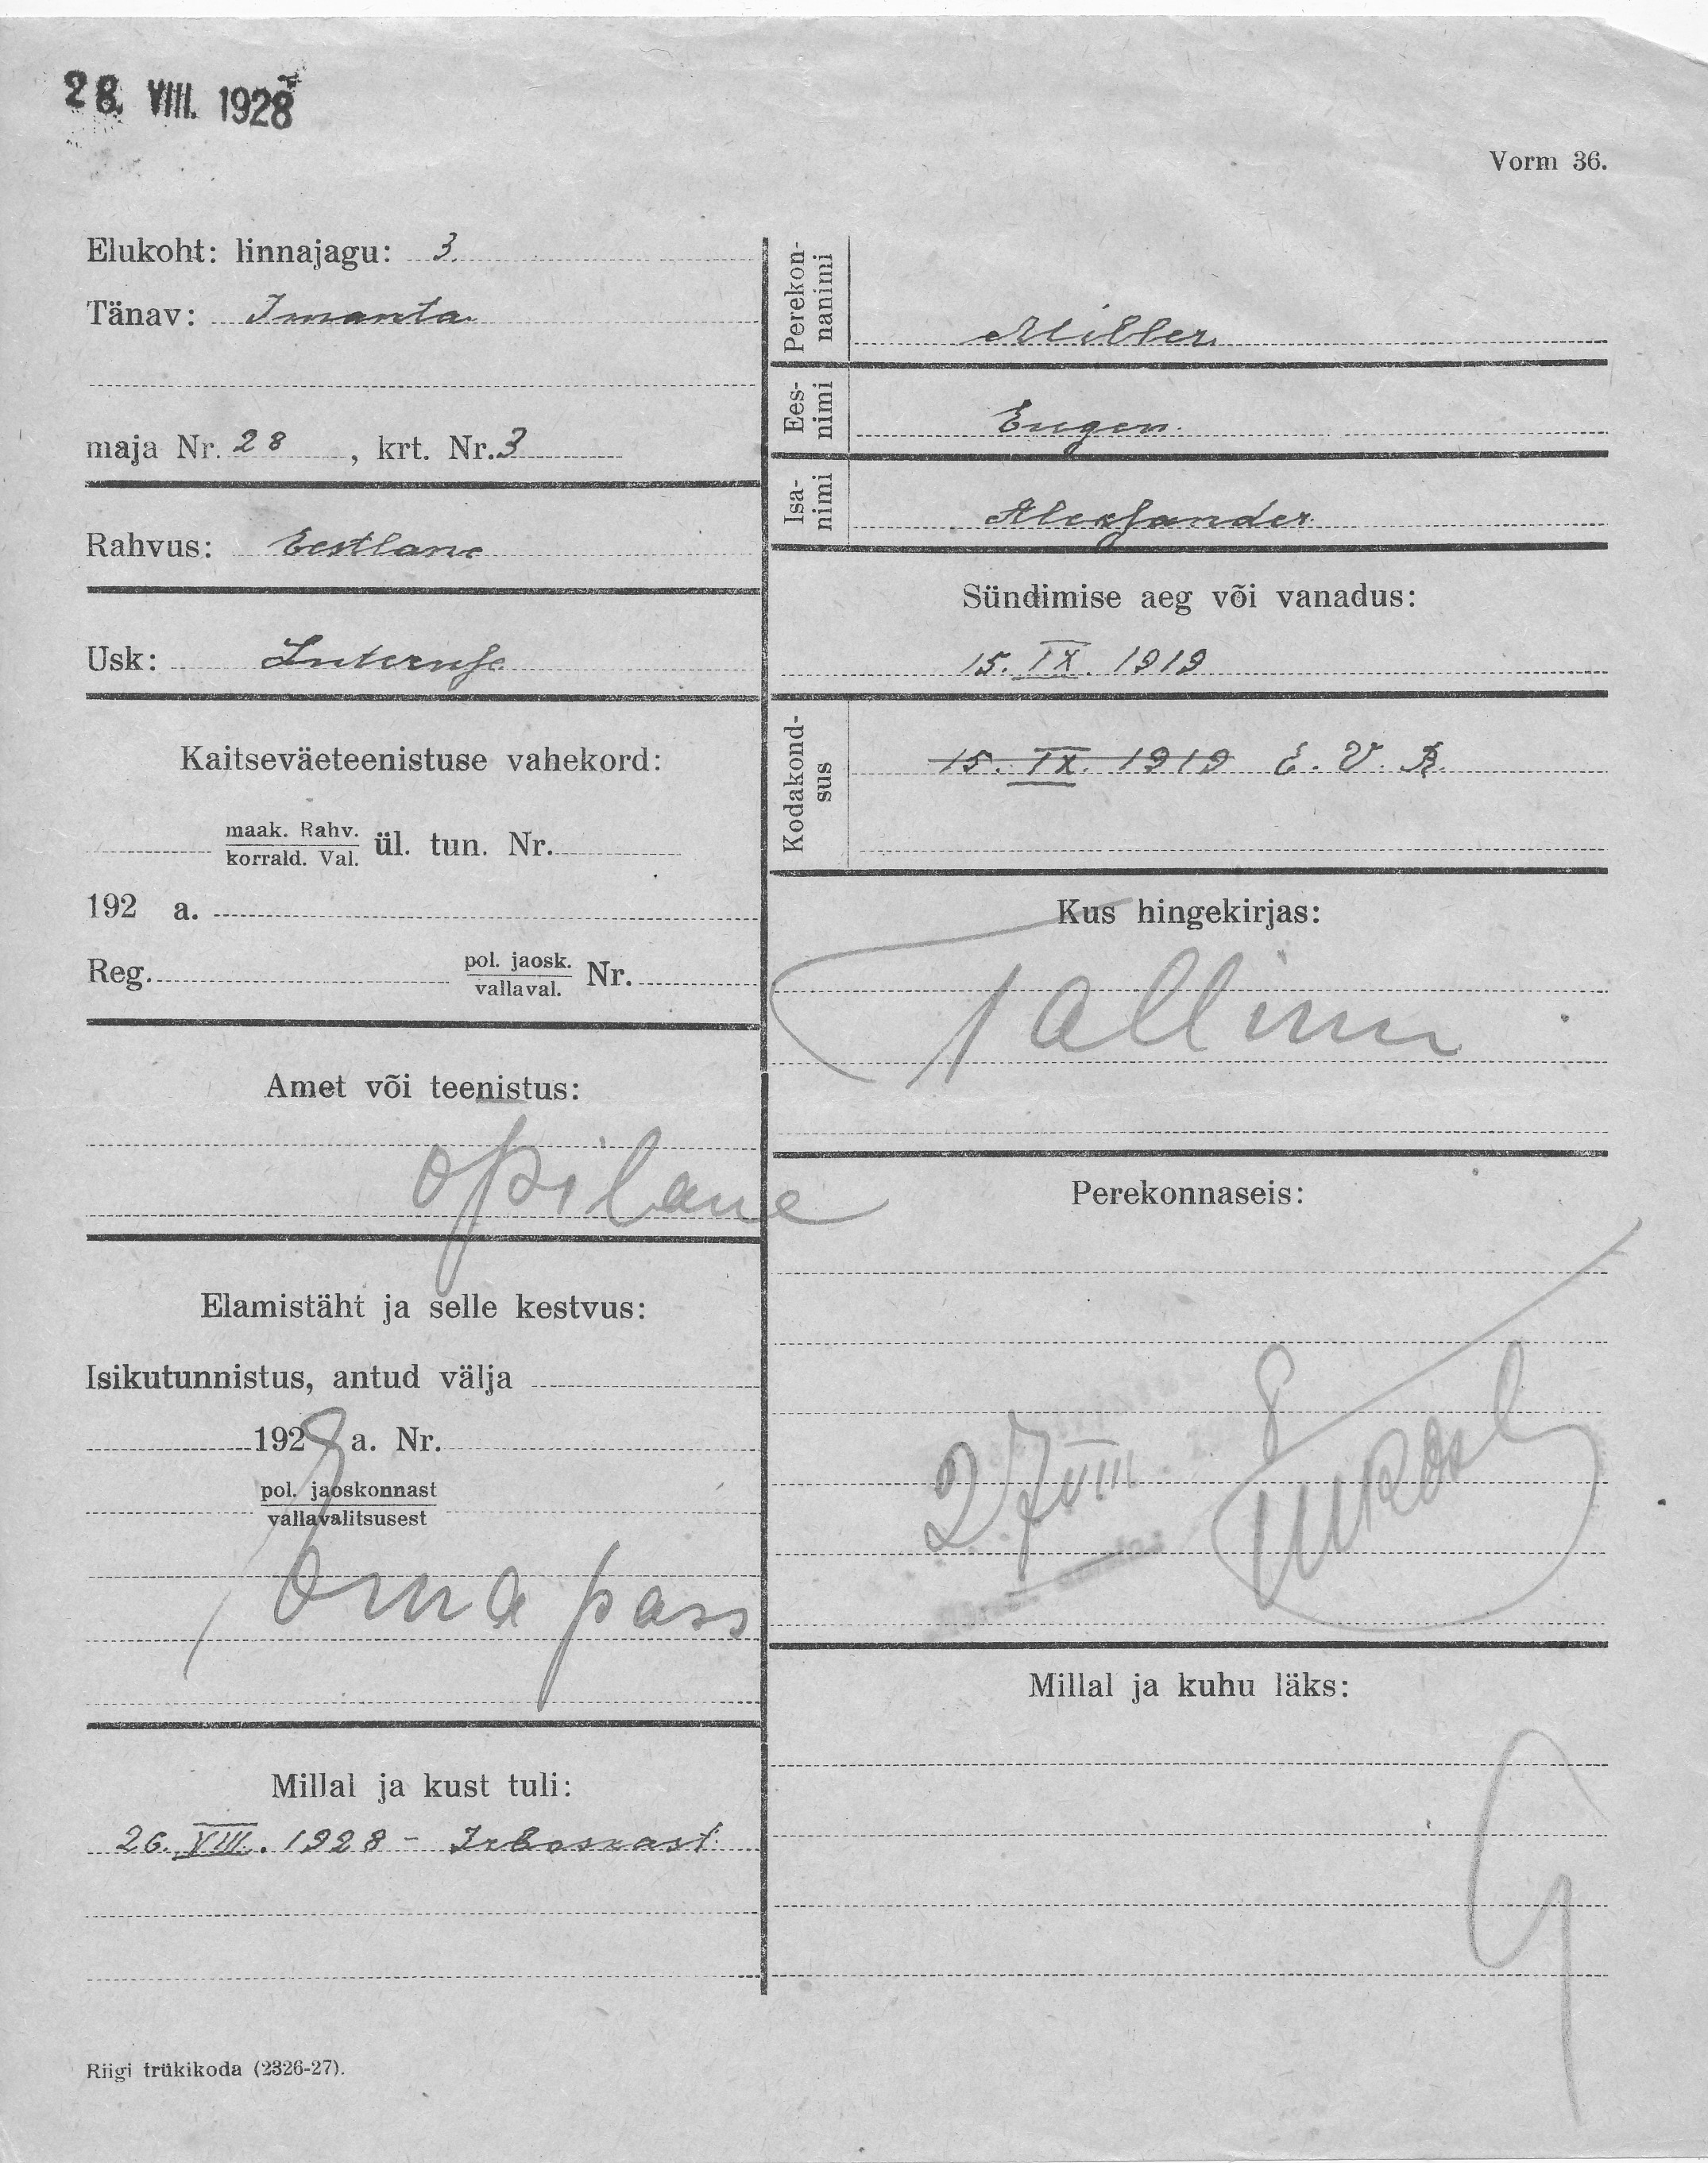 28. VIII. 1928
Vorm 36.
Elukoht: linnajagu: 3.
Tänav: Imanta
maja Nr. 28, krt. Nr. 3
Rahvus: Eestlane
Usk: Luterusse
Kaitseväeteenistuse vahekord:
maak. Rahv.
korrald. Val. ül. tun. Nr.
192 a.
Reg. pol. jaosk.
vallaval. Nr.
Amet või teenistus:
opilane
Elamistäht ja selle kestvus:
Isikutunnistus, antud välja
1928 a. Nr.
pol. jaoskonnast
vallavalitsusest
Oma pass
Millal ja kust tuli:
26. VIII. 1928 - Irboskast
Riigi trükikoda (2326-27).
Perekonnanimi
Miller
Eesnimi
Eugen
Isanimi
Aleksander
Sündimise aeg või vanadus:
15. IX. 1919
Kodakondsus
15. IX. 1919 E. V. R.
Kus hingekirjas:
Tallinn
Perekonnaseis:
27 VIII 8
Millal ja kuhu läks: